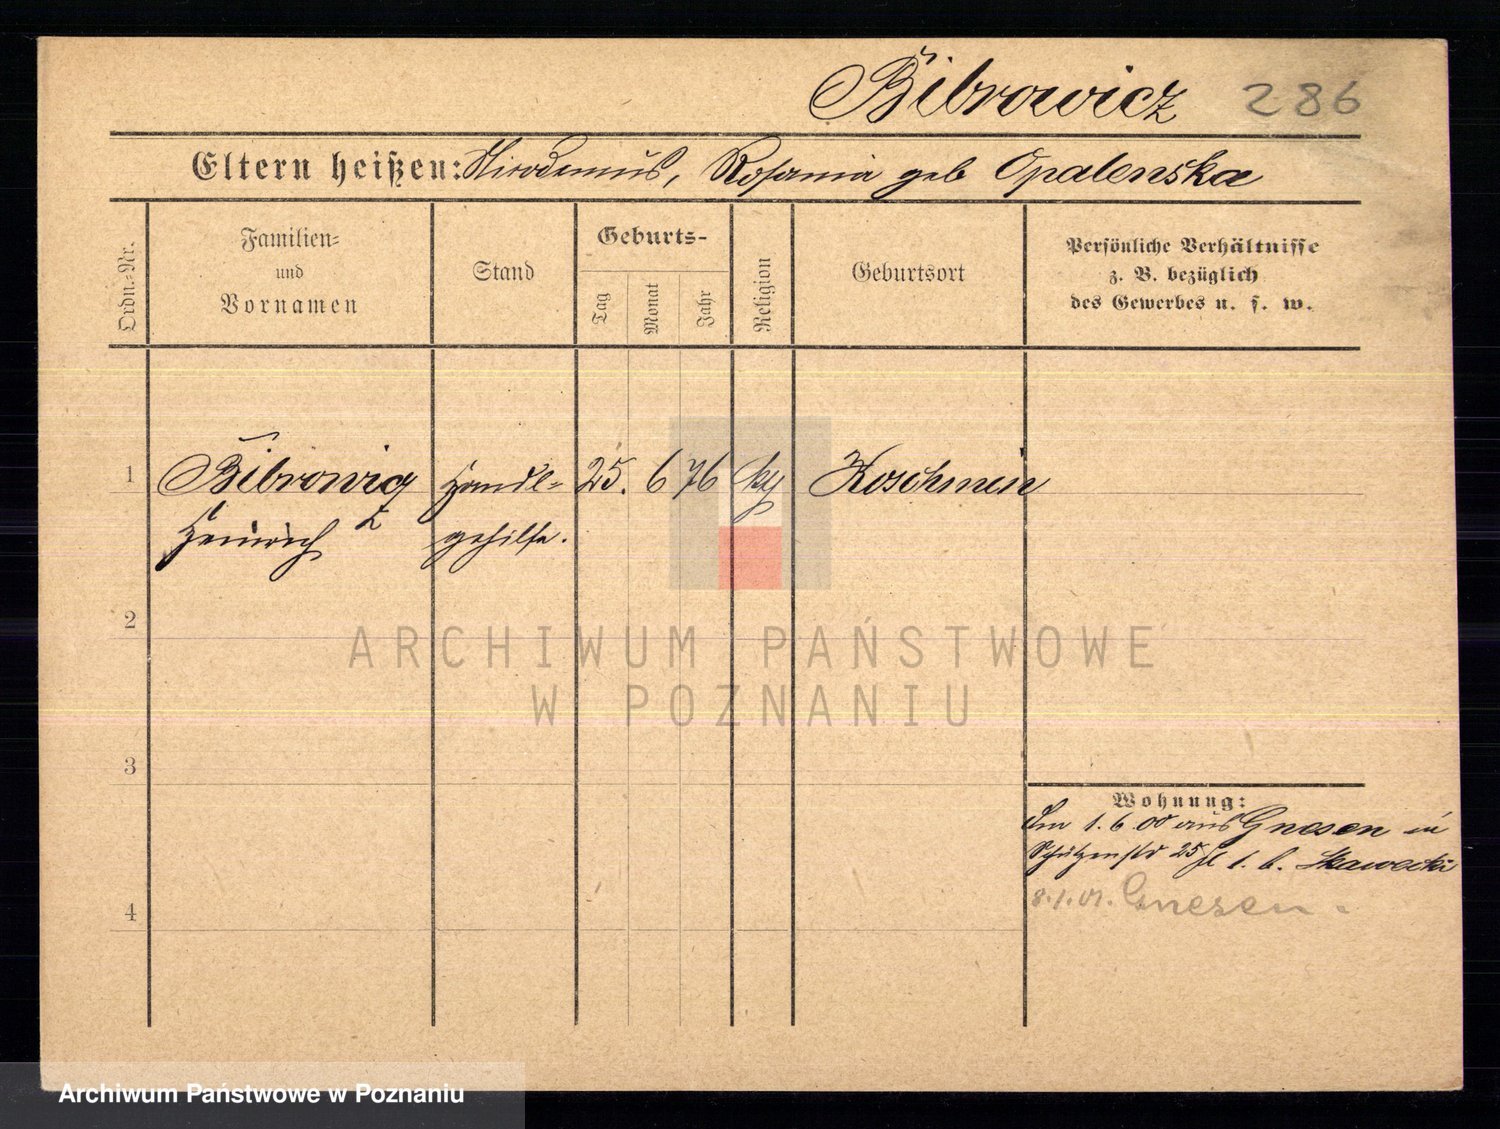 Bibrowicz 286
Eltern heißen: Nicodemus, Rosamia geb Opalenska
Ordn.-Nr.
Familien-
und
Vornamen
Stand
Geburts-
Tag
Monat
Jahr
Religion
Geburtsort
Persönliche Verhältnisse
z. B. bezüglich
des Gewerbes u. s. w.
1 Bibrowicz Handl- 25. 6 76 Koschmin
Heinrich gehilfe.
2
ARCHIWUM PAŃSTWOWE
W POZNANIU
3
Wohnung:
1. 6 00 aus Gnesen in
Schützenstr 25 b. Skawecki
8.1.01. Gnesen.
4
Archiwum Państwowe w Poznaniu